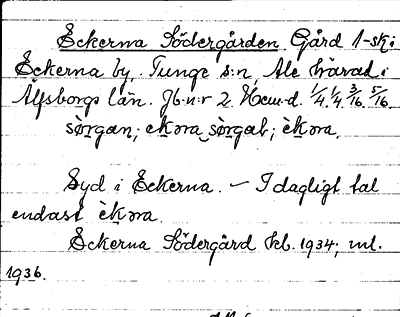 Eckerna Södergården Gård 1-sk i
Eckerna by, Tunge s:n, Ale härad i
Älfsborgs län. Jb:n:r 2. Hem-d. 1/4. 1/4. 3/16. 5/16.
sørgan; èkora sørgal; èkora.
Syd i Eckerna. — I dagligt tal
endast èkora.
Eckerna Södergård kb. 1934; ml.
1936.